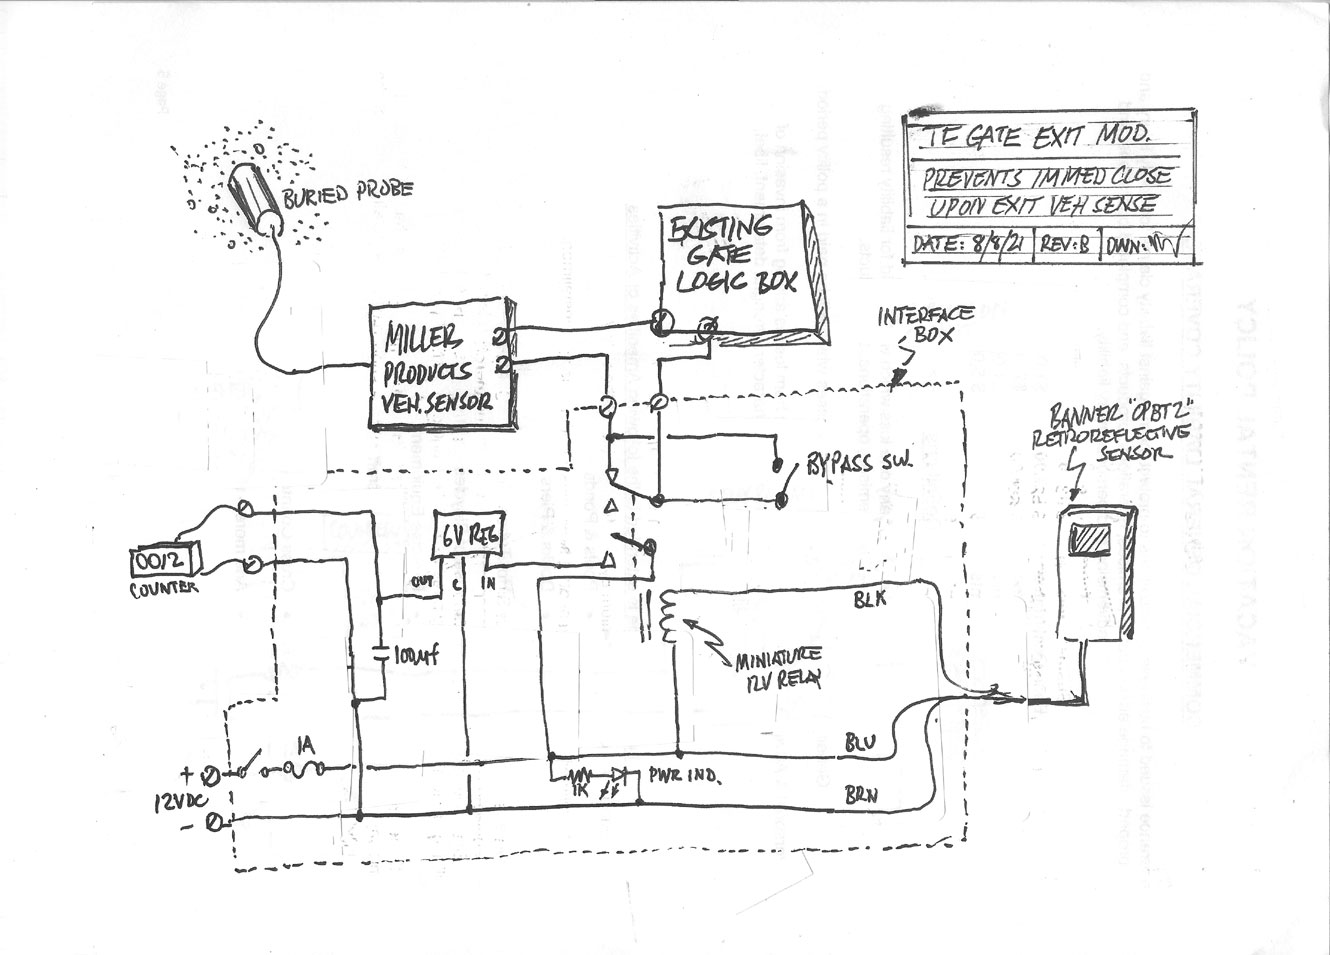 TF GATE EXIT MOD.
PREVENTS IMMED CLOSE
UPON EXIT VEH SENSE
DATE: 8/8/21 REV: B DWN:
BURIED PROBE
EXISTING
GATE
LOGIC BOX
MILLER
PRODUCTS
VEH. SENSOR
INTERFACE
BOX
BANNER "OPBT2"
RETROREFLECTIVE
SENSOR
BYPASS SW.
0012
COUNTER
6V REG
OUT C IN
100µf
BLK
MINIATURE
12V RELAY
1A
+
12VDC
-
1K
PWR IND.
BLU
BRN